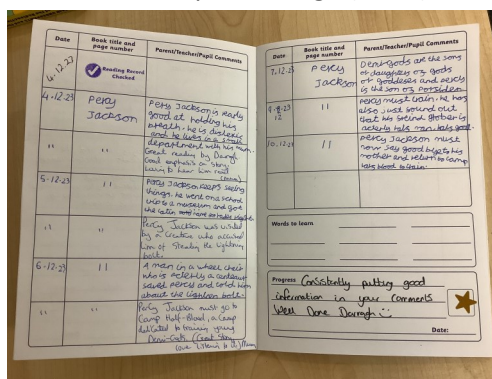 Date
Book title and page number
Parent/Teacher/Pupil Comments
4.12.23
Reading Record
Checked
4.12.23
Percy
Jackson
Percy Jackson is really
good at holding his
breath. he is dislexic
and he lives in a small
department with his mum.
Great reading by Darragh
Good emphasis on story.
Loving to hear him read
(Mum)
"
5-12-23
11
Percy Jackson keeps seeing
things. he went on a school
trip to a museum and got
the
"
Percy Jackson was visited
by a creature who accused
him of stealing the lightning
bolt.
6-12-23
11
A man in a wheel chair
who is acterly a centaur
saved percy and told him
about the lightson bolt.
"
Percy Jackson must go to
Camp Half-Blood, a Camp
dedicated to training young
Demi-Gods. (Great Story
love listening to it) Mum
Date
Book title and page number
Parent/Teacher/Pupil Comments
7.12.23
Percy
Jackson
Demi gods are the sons
or daughters of gods
or goddeses and percy
is the son of
9.
12
11
percy must train. he has
also just found out
that his
acterly
10.12.23
11
percy Jackson must
now say good bye to his
mother and return to camp
to train.
Words to learn
Progress Consistently putting good
information in your comments
Well Done Darragh
Date: